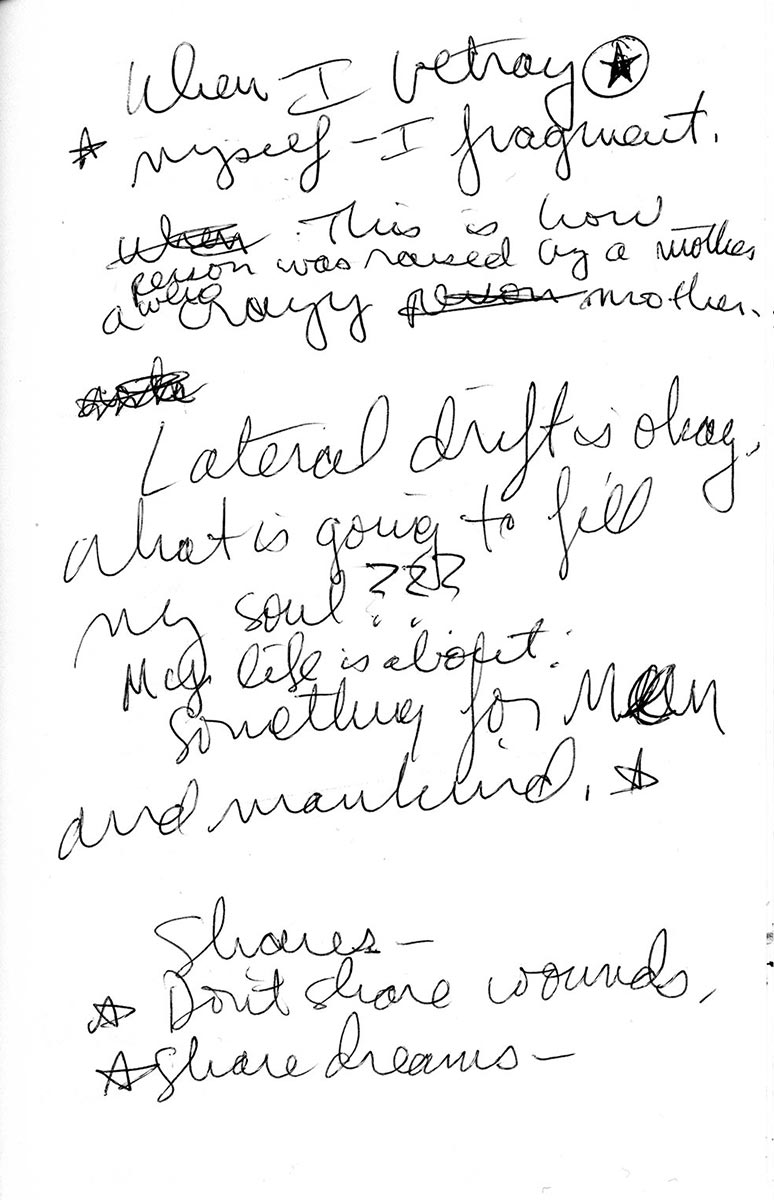 When I betray
myself – I fragment.
When This is how
person was raised by a mother
a who crazy person mother.
Lateral drift is okay.
What is going to fill
my soul???
My life is about:
something for men
and mankind.
Shares –
Don't share wounds,
Share dreams –